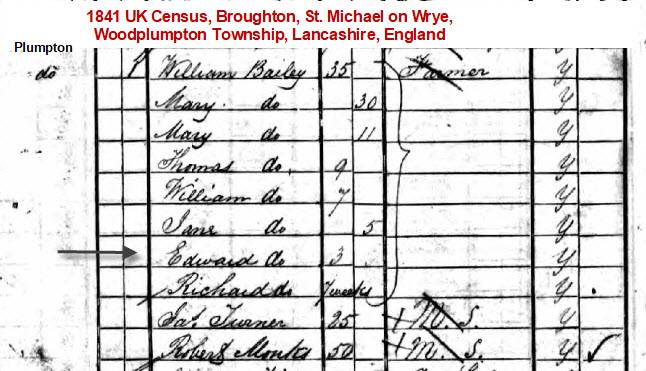 1841 UK Census, Broughton, St. Michael on Wrye,
Woodplumpton Township, Lancashire, England
Plumpton
do 1 William Bailey 35 Farmer y
Mary do 30 y
Mary do 11 y
Thomas do 9 y
William do 7 y
Jane do 5 y
Edward do 3 y
Richard do 7 weeks y
Jas. Turner 25 M. S. y
Robert Monks 50 M. S. y